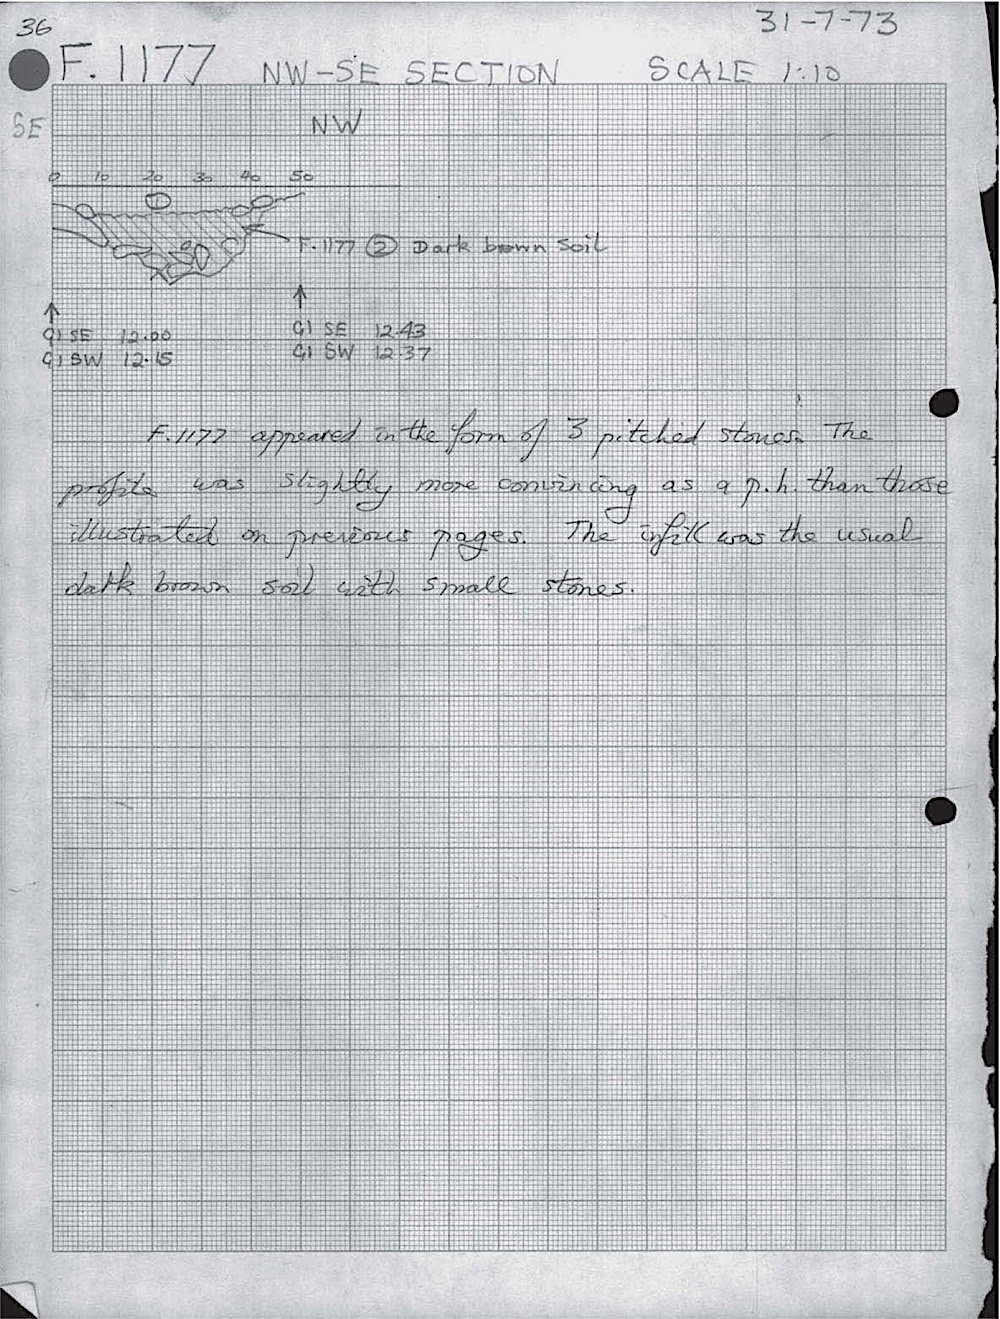 36
31-7-73
F. 1177 NW-SE SECTION SCALE 1:10
SE NW
0 10 20 30 40 50
F. 1177 ② Dark brown Soil
G1 SE 12.00
G1 SW 12.15
G1 SE 12.43
G1 SW 12.37
F.1177 appeared in the form of 3 pitched stones. The
profile was slightly more convincing as a p.h. than those
illustrated on previous pages. The infill was the usual
dark brown soil with small stones.